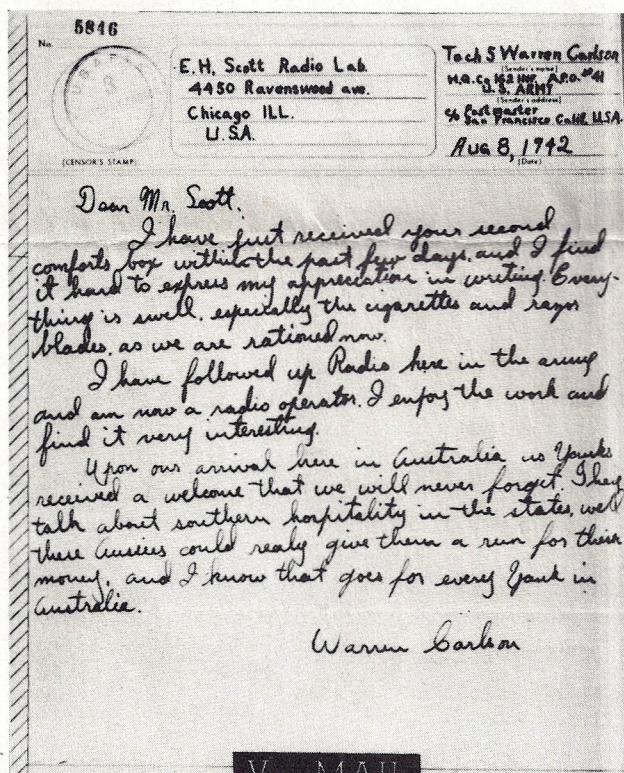 5846
No.
(CENSOR'S STAMP)
E.H. Scott Radio Lab.
4450 Ravenswood ave.
Chicago ILL.
U.S.A.
Tech 5 Warren Carlson
(Sender's name)
H.Q. Co 162 INF. A.P.O. #41
U.S. ARMY
(Sender's address)
c/o Postmaster
San Francisco Calif. U.S.A.
AUG 8, 1942
(Date)
Dear Mr. Scott:
I have just received your second
comforts box within the past few days, and I find
it hard to express my appreciation in writing. Every-
thing is swell, especially the cigarettes and razor
blades, as we are rationed now.
I have followed up Radio here in the army
and am now a radio operator. I enjoy the work and
find it very interesting.
Upon our arrival here in Australia us Yanks
received a welcome that we will never forget. They
talk about southern hospitality in the states, well
these Aussies could realy give them a run for their
money, and I know that goes for every Yank in
Australia.
Warren Carlson
V-MAIL